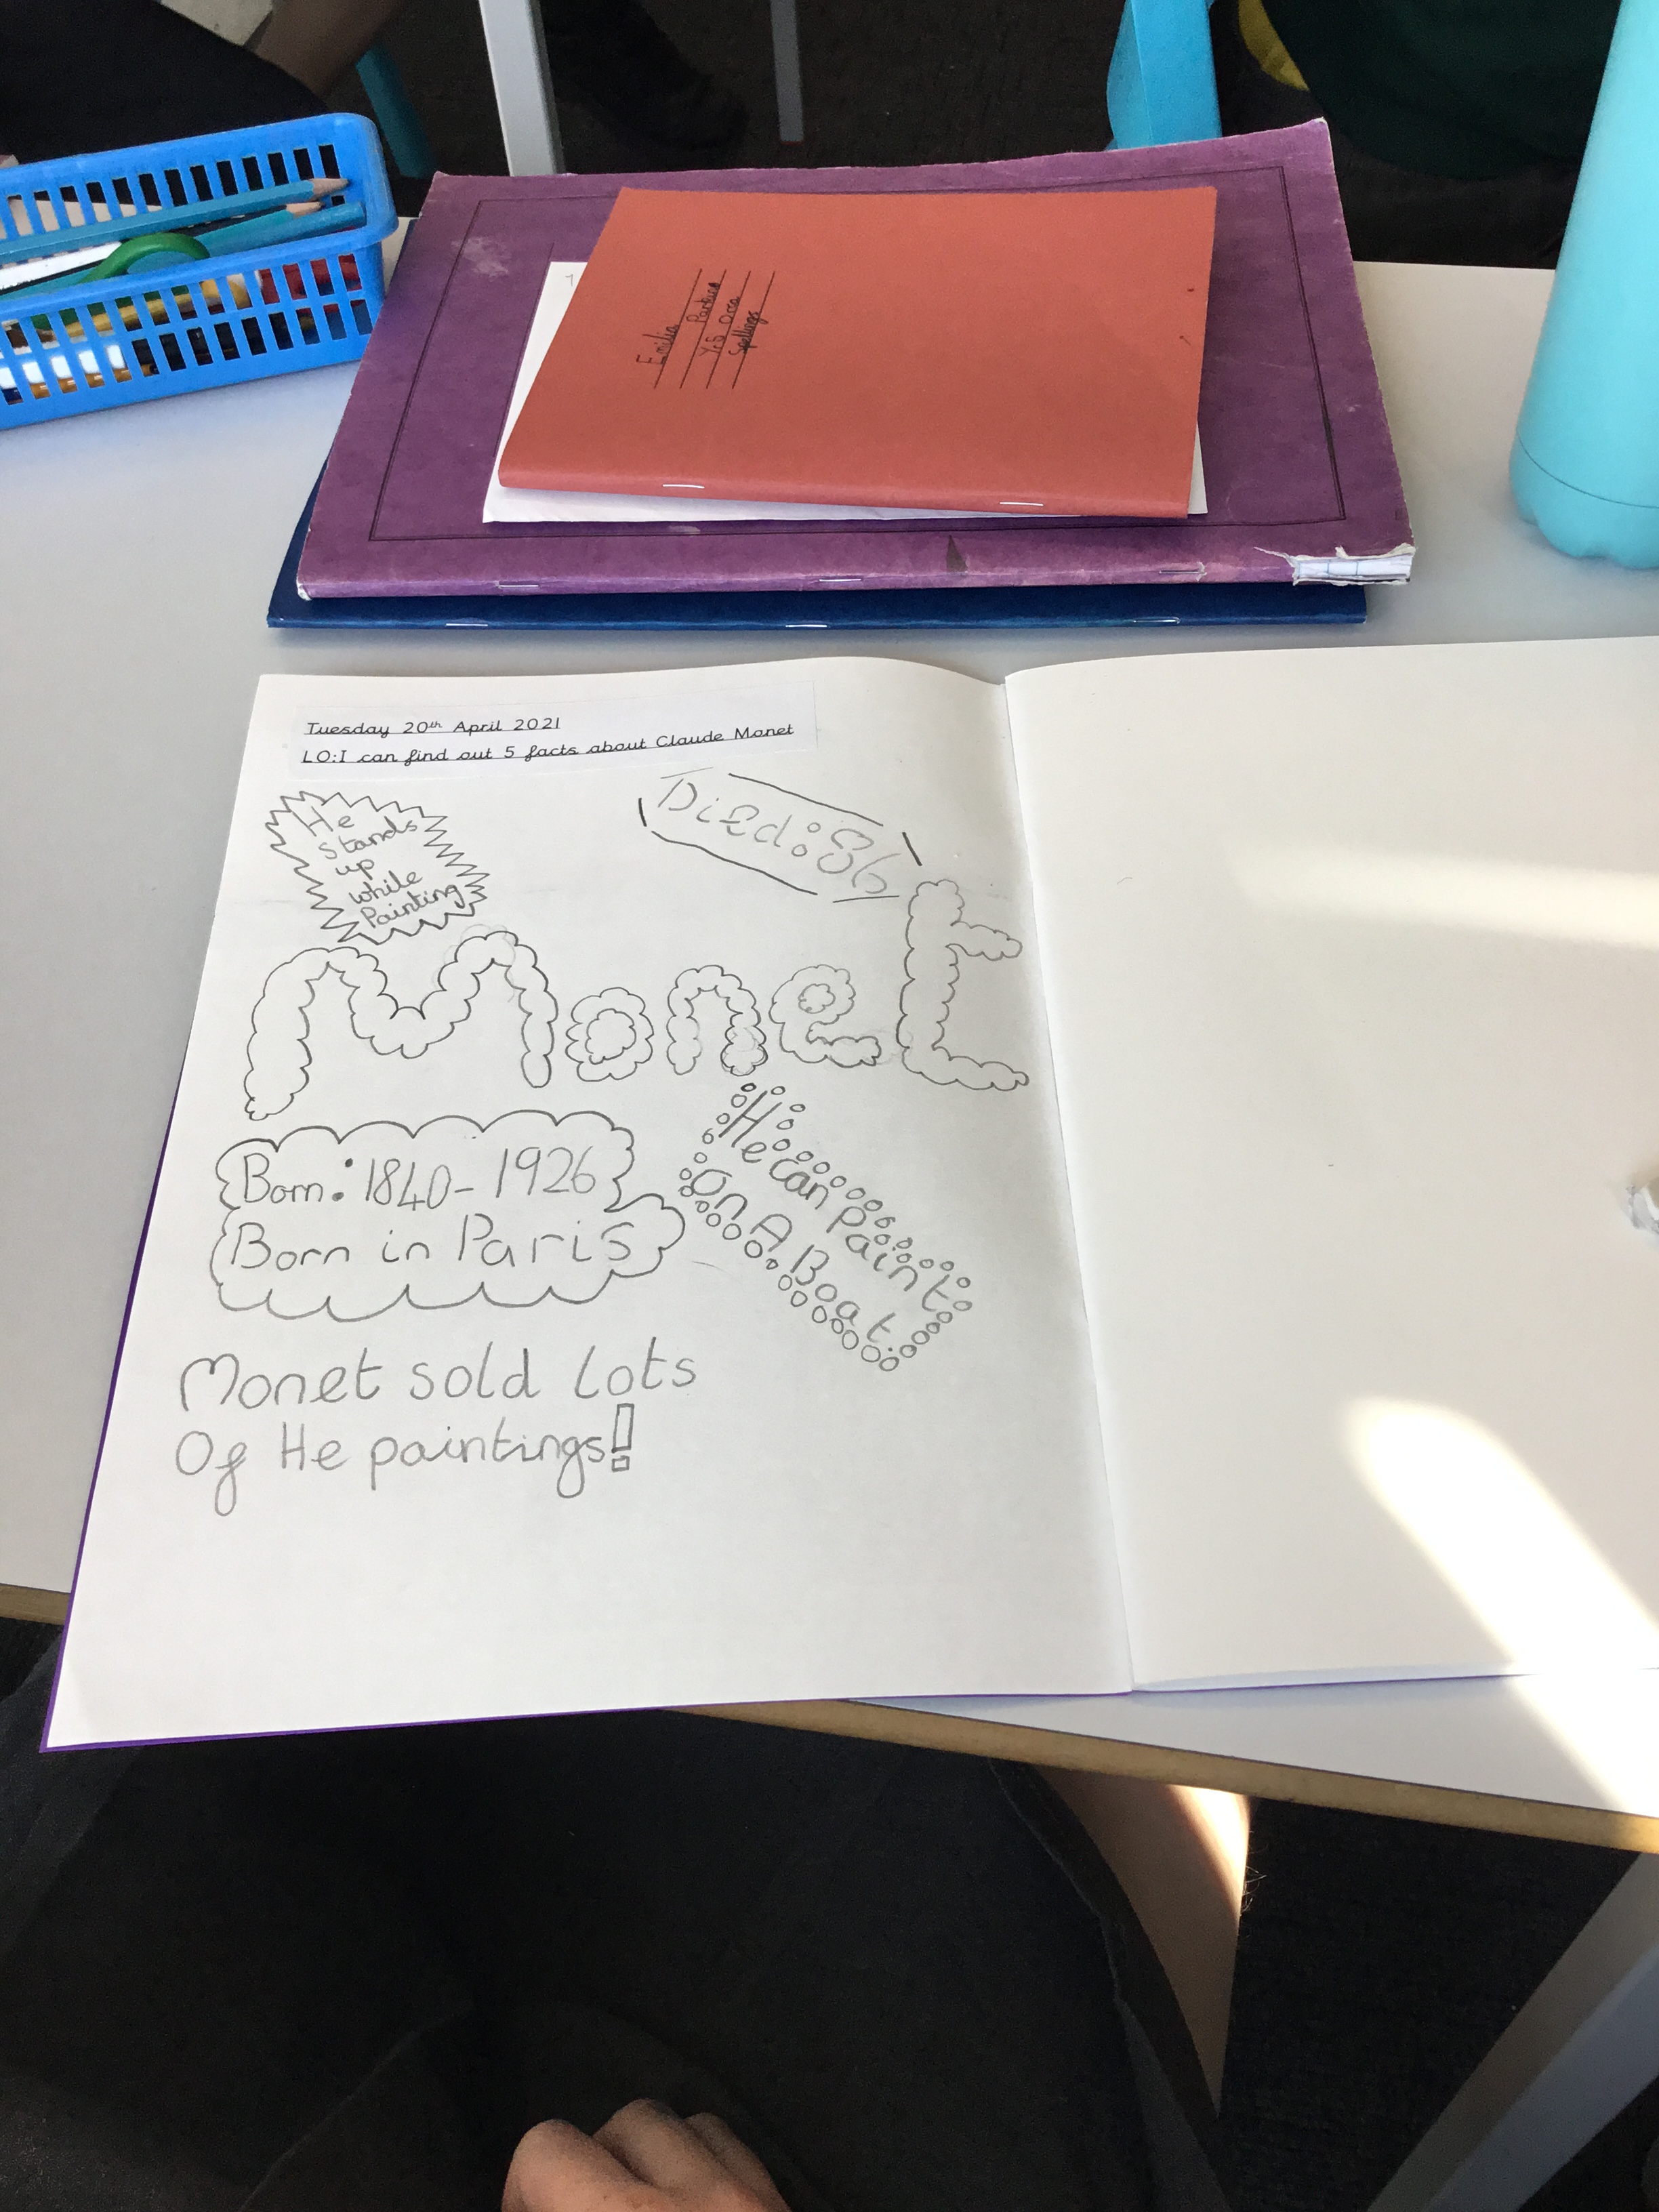 Emilia
Parkins
Yr5 Orca
Spellings
Tuesday 20th April 2021
LO:I can find out 5 facts about Claude Monet
He
stands
up
while
Painting
Died:86
Monet
Born:1840-1926
Born in Paris
He can paint
On A Boat.
Monet sold lots
Of He paintings!